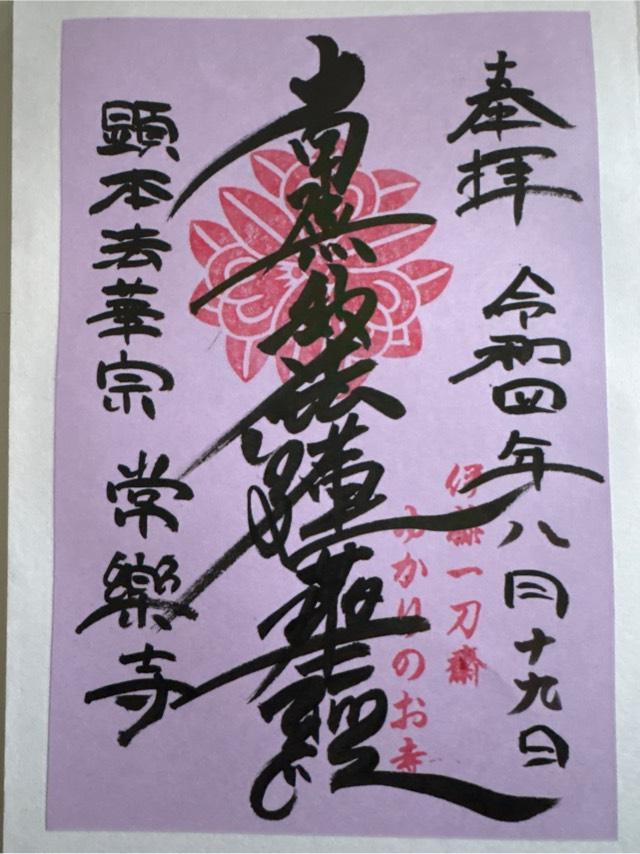 奉拝 令和四年八月十九日
伊藤一刀齋
ゆかりのお寺
南無妙法蓮華經
顕本法華宗 常樂寺